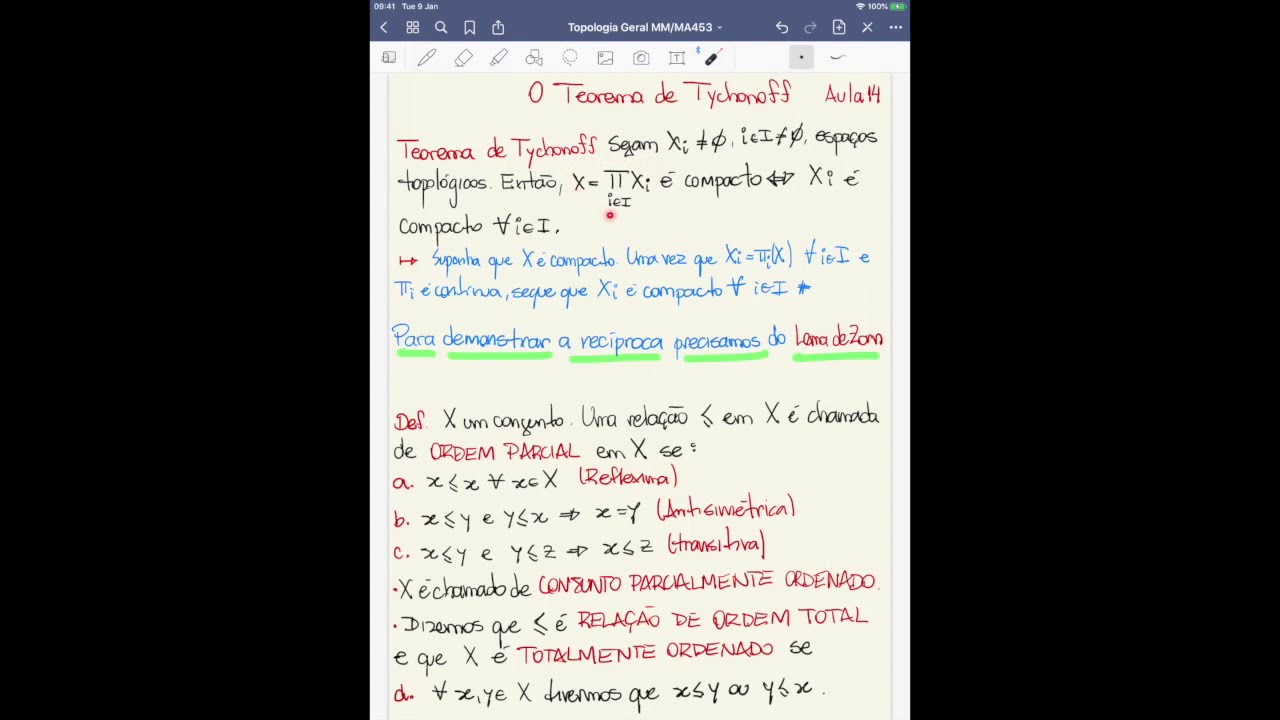 09:41 Tue 9 Jan 100%
Topologia Geral MM/MA453
O Teorema de Tychonoff Aula 14
Teorema de Tychonoff Sejam Xi ≠ ∅, i∈I ≠ ∅, espaços
topológicos. Então, X = ∏ Xi é compacto ⇔ Xi é
i∈I
compacto ∀ i∈I.
↦ Suponha que X é compacto. Uma vez que Xi = πi(X) ∀ i∈I e
πi é contínua, segue que Xi é compacto ∀ i∈I #
Para demonstrar a recíproca precisamos do Lema de Zorn
Def. X um conjunto. Uma relação ≤ em X é chamada
de ORDEM PARCIAL em X se:
a. x ≤ x ∀ x∈X (Reflexiva)
b. x ≤ y e y ≤ x ⇒ x = y (Antisimétrica)
c. x ≤ y e y ≤ z ⇒ x ≤ z (transitiva)
• X é chamado de CONJUNTO PARCIALMENTE ORDENADO.
• Dizemos que ≤ é RELAÇÃO DE ORDEM TOTAL
e que X é TOTALMENTE ORDENADO se
d. ∀ x, y ∈ X tivermos que x ≤ y ou y ≤ x.